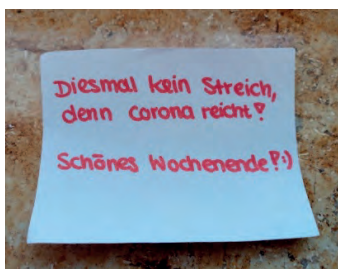 Diesmal kein Streich,
denn Corona reicht!
Schönes Wochenende!:)